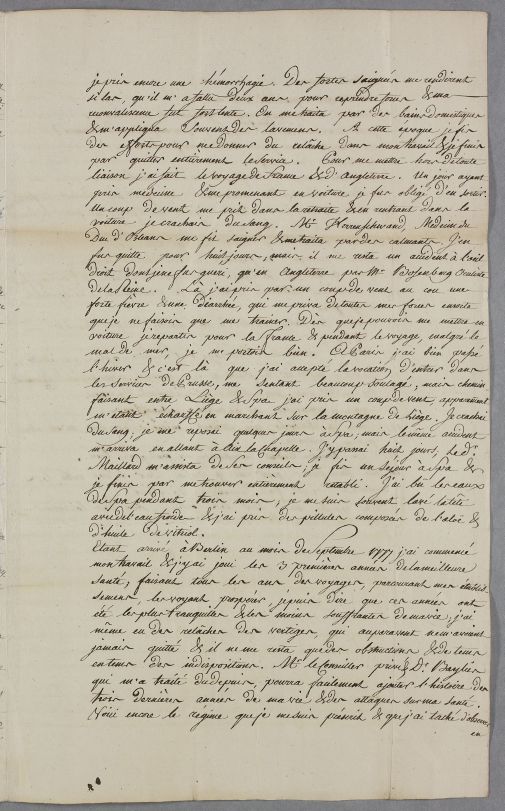 je pris encore une hémorhagie. Des fortes saignés me rendirent
si las, qu'il m'a fallu deux ans, pour reprendre forces & ma
convalescence fut fort lente. On me traita par des bains domestiques
& m'appliqua souvent des lavemens. A cette époque je fis
des efforts pour me donner du relache dans mon travail & je finis
par quitter entièrement le service. Pour me mettre hors de toute
liaison j'ai fait le voyage de France & d'Angleterre. Un jour ayant
pris médecine & me promenant en voiture je fus obligé d'en sortir.
Un coup de vent me prit dans la retraite & en rentrant dans la
voiture je crachais du sang. Mr. Herrenschwand, Medecin du
Duc d'Orleans me fit saigner & me traita par des calmants. J'en
fus quitte pour huit jours, mais, il me resta un accident à l'oeil
droit dont je ne fus gueri, qu'en Angleterre par Mr. Oculiste
de la Reine. Là j'ai pris par un coup de vent au cou une
forte fièvre & une diarrhée, qui me priva de toutes mes forces ensorte
que je ne faisois que me trainer. Dès que je pouvois me mettre en
voiture je repartis pour la France & pendant le voyage, malgré le
mal de mer, je me portois bien. A Paris j'ai bien passé
l'hiver & c'est là que j'ai accepté la vocation d'entrer dans
les services de Prusse, me sentant beaucoup soulagé, mais chemin
faisant entre Liège & Spa j'ai pris un coup de vent, apparemment
m'étant échauffé en marchant sur la montagne de Liège. Je crachai
du sang. je me reposai quelques jours à Spa; mais le même accident
m'arriva en allant à Aix la Chapelle. J'y passai huit jours, le dr.
Maillard m'assista de ses conseils; je fis un séjour à Spa &
je finis par me trouver entièrement retabli. J'ai bu les eaux
de Spa pendant trois mois, je me suis souvent lavé la tête
avec de l'eau froide & j'ai pris des pillules composées de l'aloë &
d'huile de vitriol.
Etant arrivé à Berlin au mois de Septembre 1777 j'ai commencé
mon travail & j'y ai joui les 3 premières années de la meilleure
santé, faisant tous les ans des voyages, parcourant mes établis-
semens, les voyant prosperer, je puis dire que ces années ont
été les plus tranquilles & les moins souffrantes de ma vie; j'ai
même eu des relaches des vertiges, qui auparavant ne m'avoient
jamais quitté & il ne me resta que des obstructions & de tems
en tems des indispositions. Mr. le Conseiller privé Dr. Baylies
qui m'a traité du depuis, pourra facilement ajouter l'histoire des
trois dernières années de ma vie & des attaques sur ma santé.
Voici encore le régime que je me suis préscrit & que j'ai taché d'observer,
en